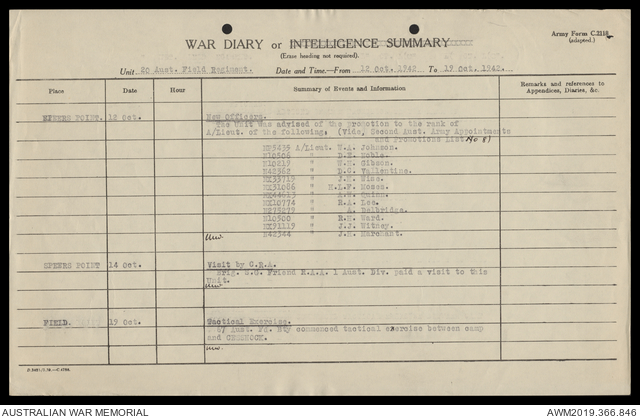 Army Form C.2118
(adapted.)
WAR DIARY or INTELLIGENCE SUMMARY
(Erase heading not required).
Unit 20 Aust. Field Regiment. Date and Time.—From 12 Oct. 1942 To 19 Oct. 1942.
Place Date Hour Summary of Events and Information Remarks and references to Appendices, Diaries, &c.
SPEERS POINT. 12 Oct. New Officers.
The Unit was advised of the promotion to the rank of
A/Lieut. of the following. (Vide, Second Aust. Army Appointments
and Promotions List No 8)
A/Lieut. W.A. Johnson.
" D.E. Noble.
" W.H. Gibson.
" D.G. Vallentine.
" J.H. Wise.
" H.L.F. Moses.
" A.W. Quinn.
NX10774 " R.A. Lee.
" A. Balbridge.
" R.H. Ward.
NX91119 " J.J. Witney.
" J.H. Marchant.
SPEERS POINT 14 Oct. Visit by C.R.A.
Brig. Friend R.A.A. 1 Aust. Div. paid a visit to this
Unit.
FIELD. 19 Oct. Tactical Exercise.
Aust. Fd. Bty commenced tactical exercise between camp
and GREENOCK.
AUSTRALIAN WAR MEMORIAL AWM2019.366.846